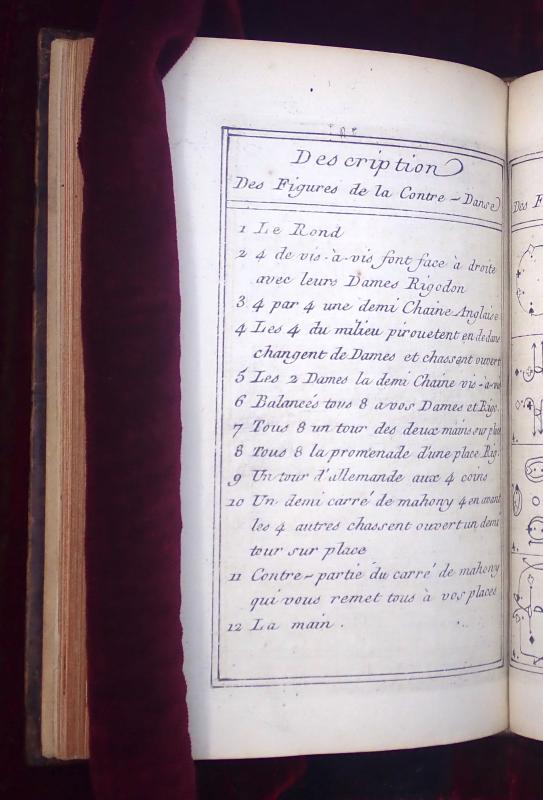 Description
Des Figures de la Contre-Danse
1 Le Rond
2 4 de vis-à-vis font face à droite
avec leurs Dames Rigodon
3 4 par 4 une demi Chaine Anglaise
4 Les 4 du milieu pirouetent en dedans
changent de Dames et chassent ouvert
5 Les 2 Dames la demi Chaine vis-a-vis
6 Balancés tous 8 a vos Dames et Rigo.
7 Tous 8 un tour des deux mains sur place
8 Tous 8 la promenade d'une place Rig.
9 Un tour d'allemande aux 4 coins
10 Un demi carré de mahony 4 en avant
les 4 autres chassent ouvert un demi
tour sur place
11 Contre-partie du carré de mahony
qui vous remet tous à vos places
12 La main.
Des F